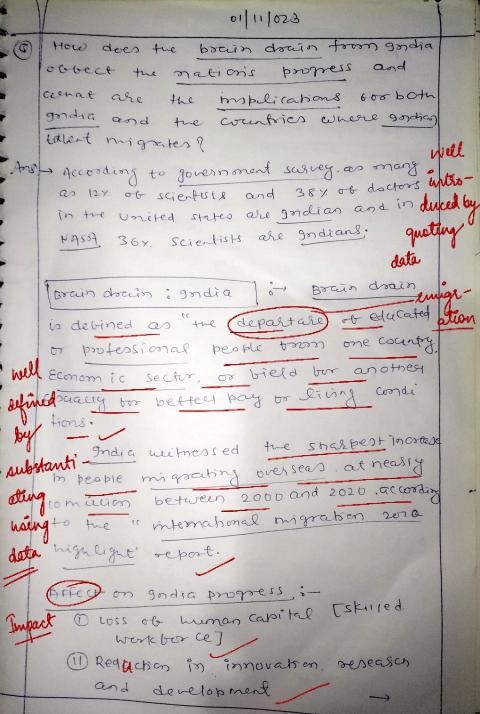 01/11/023
Q How does the brain drain from India
obbect the nation's progress and
what are the implications bor both
India and the countries where Indian
talent migrates?
Ans → According to government survey. as many
as 12% ob scientists and 38% ob doctors
in the United states are Indian and in
NASA, 36% scientists are Indians.
well
intro-
duced by
quoting
data
Brain drain : India :→ Brain drain
is debined as "the departure ob educated
or probessional people brom one country,
Economic sector, or bield bor another
usually bor better pay or living condi
tions.
emigr-
ation
India witnessed the sharpest increase
in people migrating overseas at nearly
10 million between 2000 and 2020. according
to the "international migration 2020
highlight" report.
well
defined
by
substanti-
ating
using
data
Abbect on India progress :-
Impact
I Loss ob human capital [skilled
workborce]
II Reduction in innovation, research
and development
→